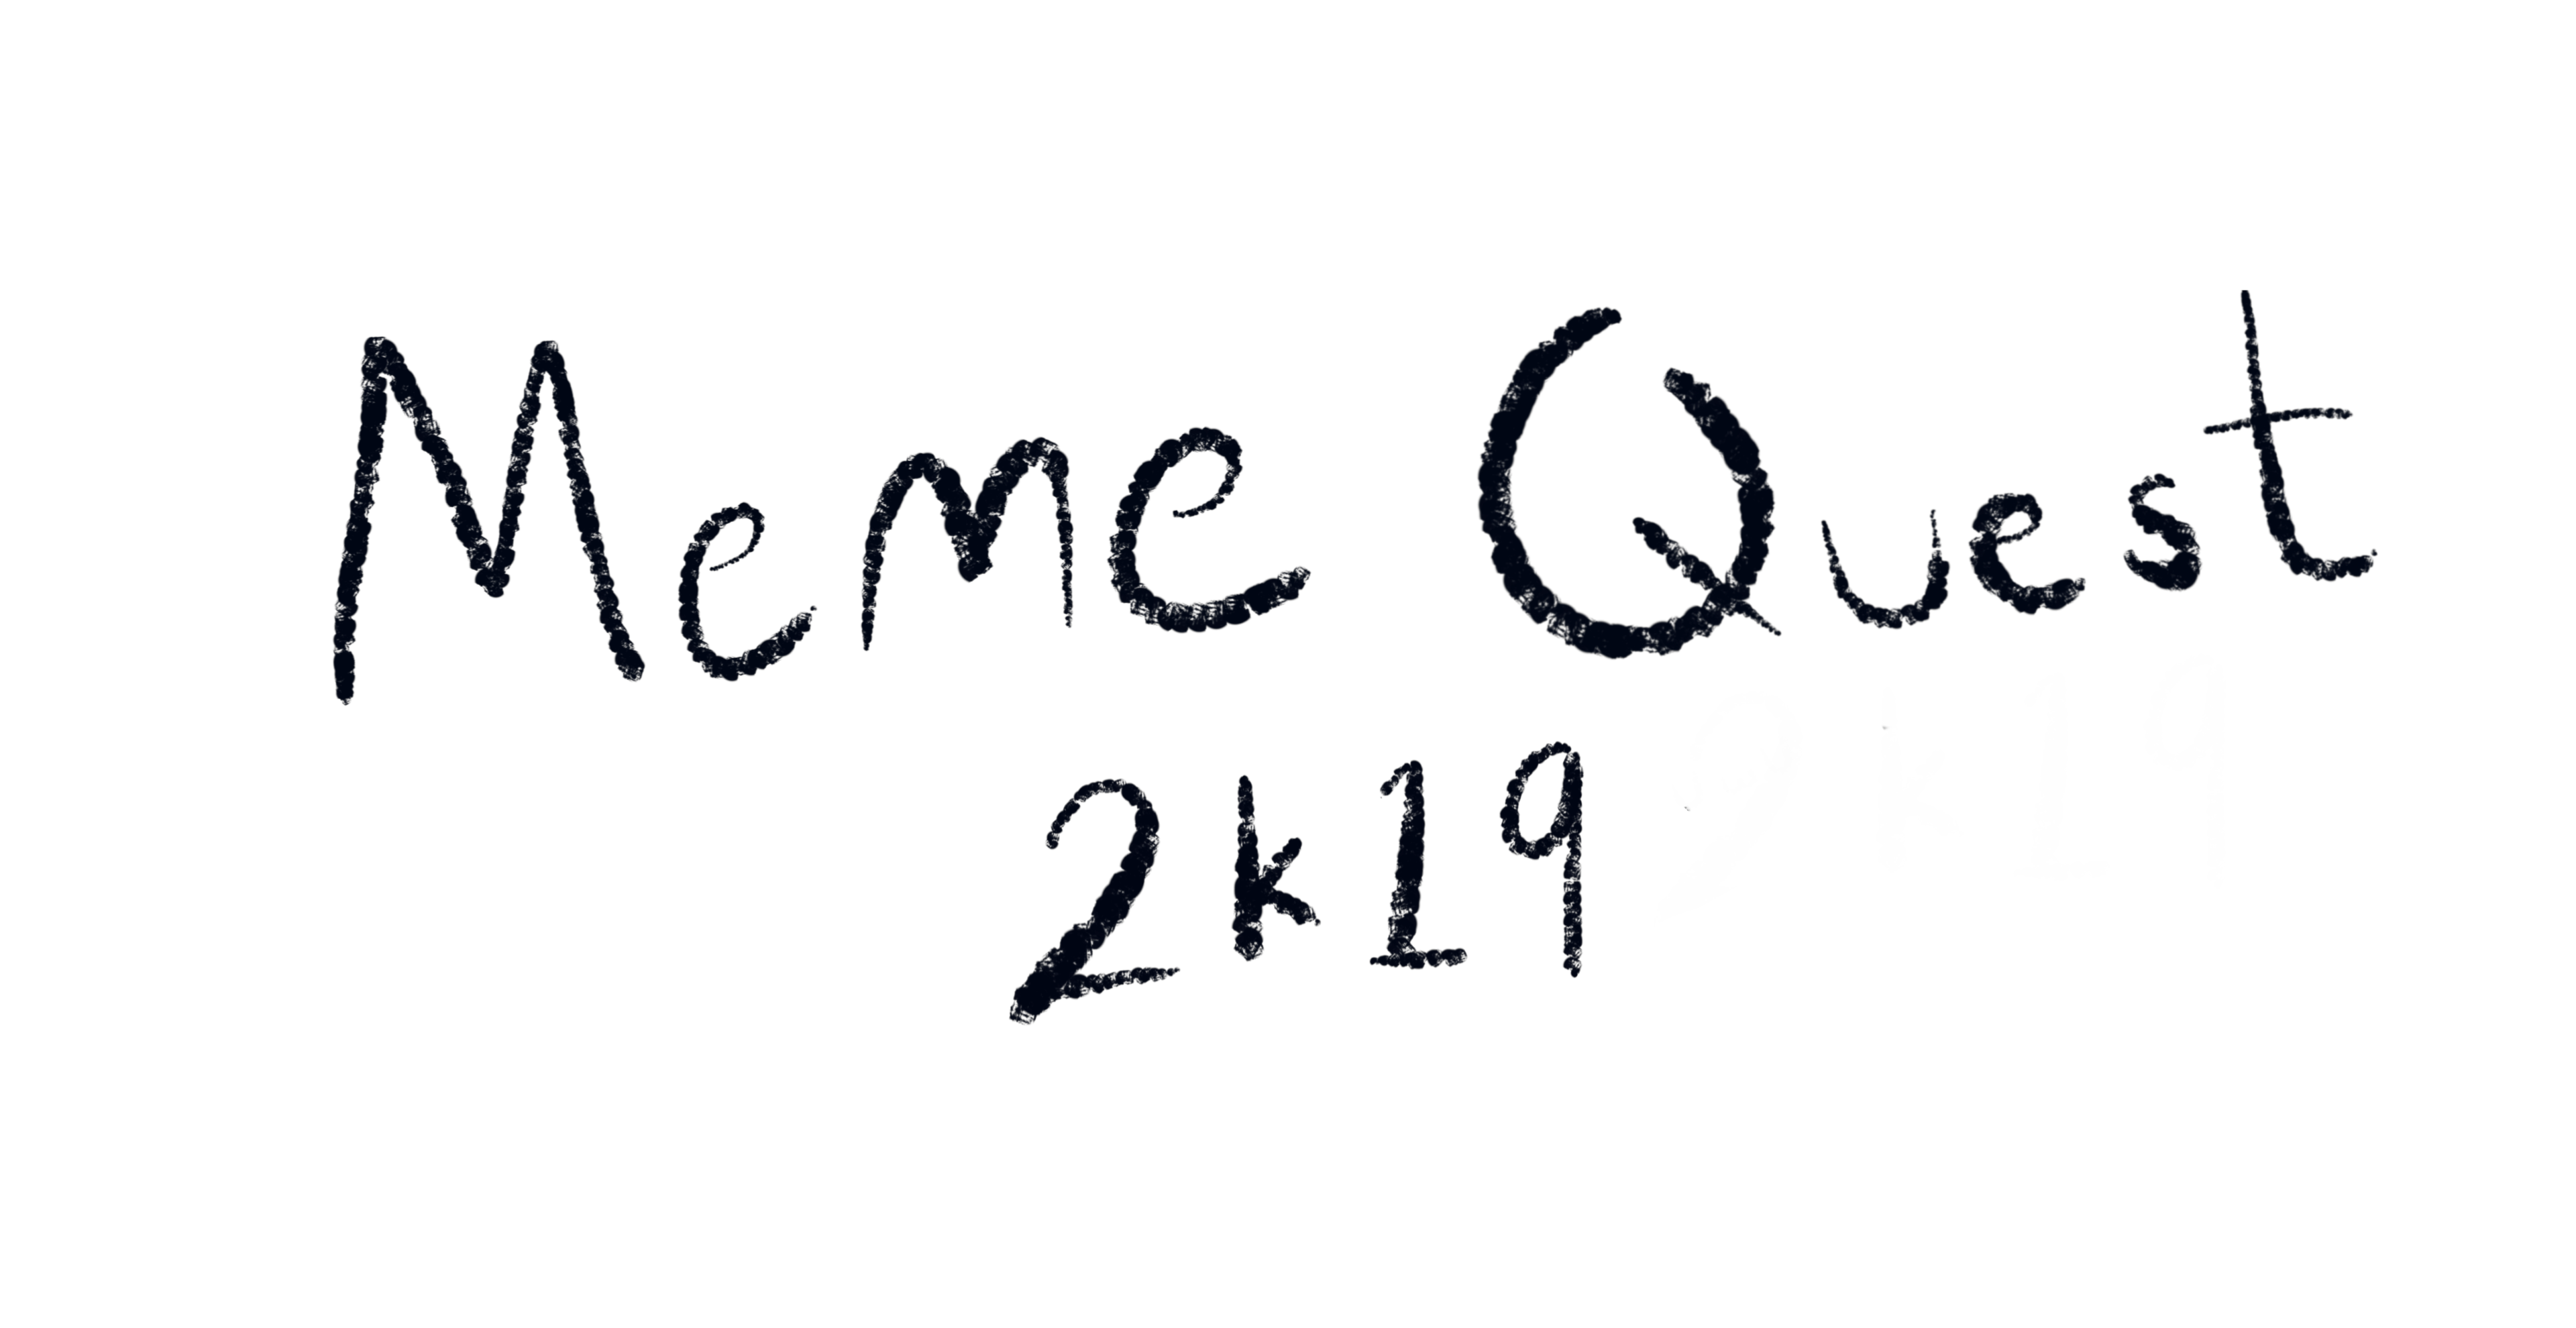 Meme Quest
2k19